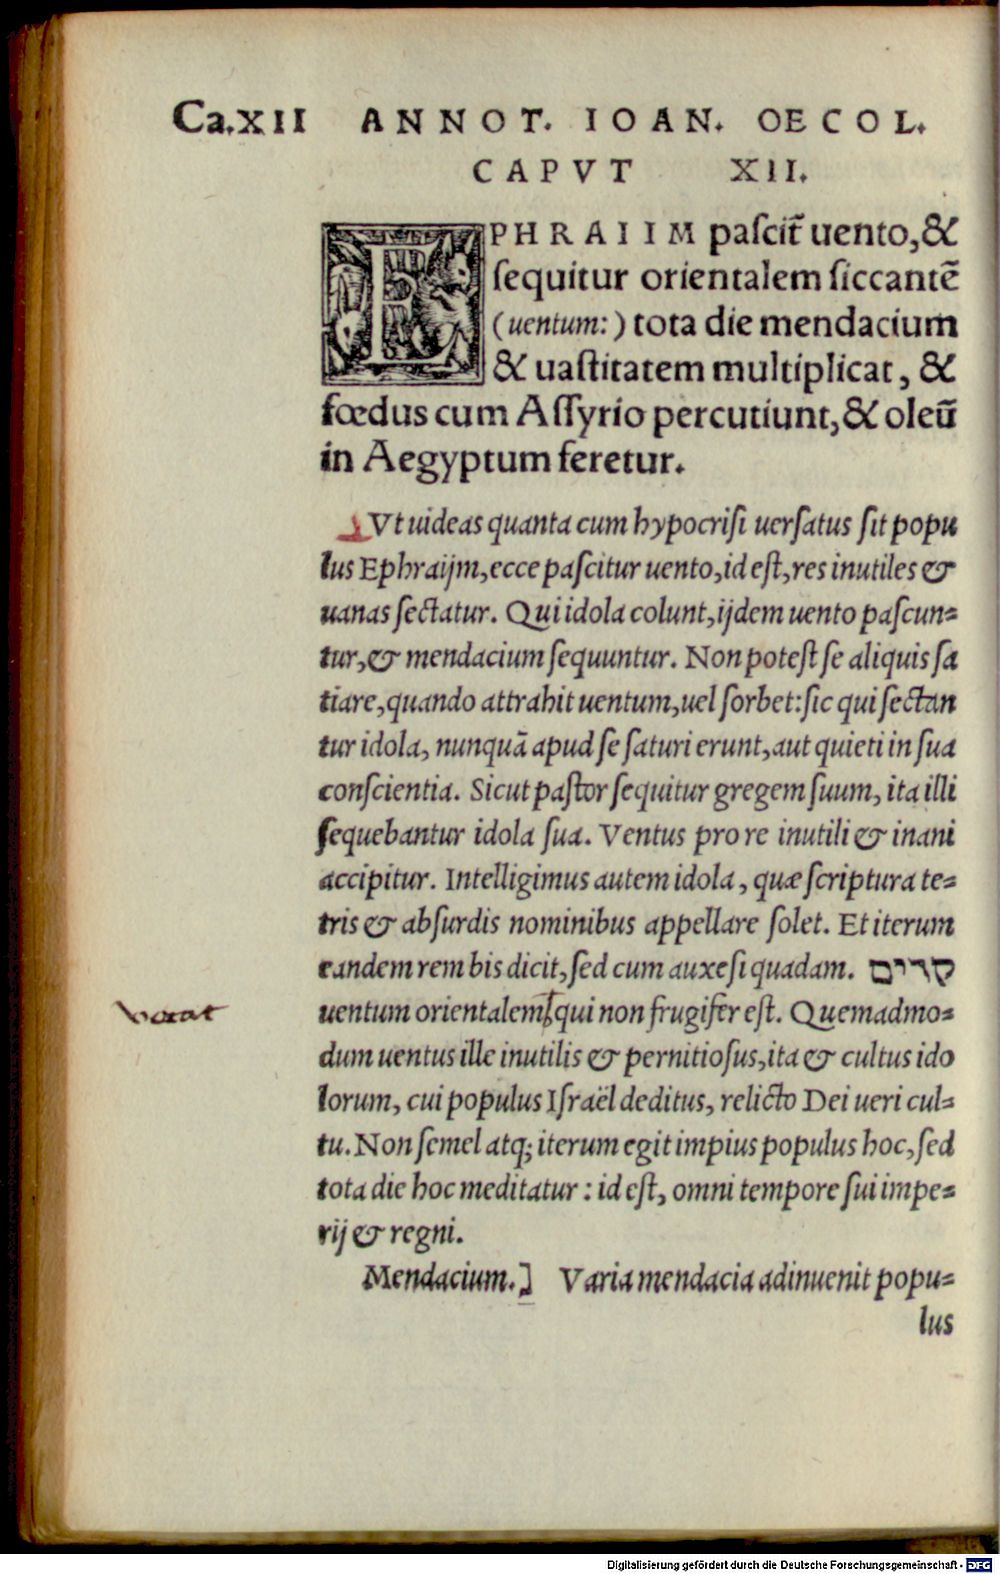 Ca.XII ANNOT. IOAN. OECOL.
CAPVT XII.
EPHRAIIM paſcit̃ uento, &
ſequitur orientalem ſiccantẽ
(uentum:) tota die mendacium
& uaſtitatem multiplicat, &
fœdus cum Aſſyrio percutiunt, & oleũ
in Aegyptum feretur.
Vt uideas quanta cum hypocriſi uerſatus ſit popu
lus Ephraijm, ecce paſcitur uento, id eſt, res inutiles &
uanas ſectatur. Qui idola colunt, ijdem uento paſcun=
tur, & mendacium ſequuntur. Non poteſt ſe aliquis ſa
tiare, quando attrahit uentum, uel ſorbet: ſic qui ſectan
tur idola, nunquã apud ſe ſaturi erunt, aut quieti in ſua
conſcientia. Sicut paſtor ſequitur gregem ſuum, ita illi
ſequebantur idola ſua. Ventus pro re inutili & inani
accipitur. Intelligimus autem idola, quæ ſcriptura te=
tris & abſurdis nominibus appellare ſolet. Et iterum
eandem rem bis dicit, ſed cum auxeſi quadam. קדים
uocat
uentum orientalem, qui non frugifer eſt. Quemadmo=
dum uentus ille inutilis & pernitioſus, ita & cultus ido
lorum, cui populus Iſraël deditus, relicto Dei ueri cul=
tu. Non ſemel atq; iterum egit impius populus hoc, ſed
tota die hoc meditatur: id eſt, omni tempore ſui impe=
rij & regni.
Mendacium.] Varia mendacia adinuenit popu=
lus
Digitalisierung gefördert durch die Deutsche Forschungsgemeinschaft - DFG